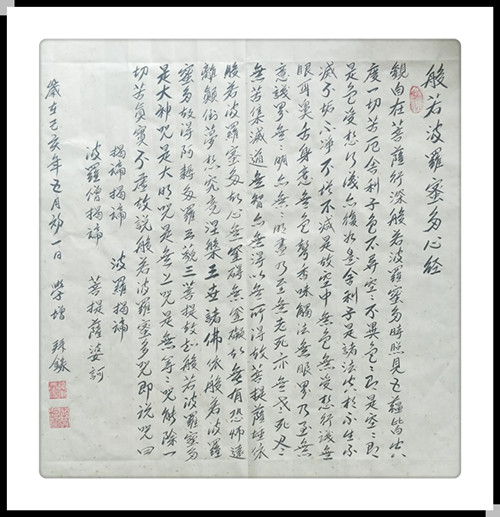 般若波羅蜜多心经
觀自在菩薩行深般若波羅蜜多時照見五蘊皆空
度一切苦厄舍利子色不异空空不異色色即是空空即
是色受想行識亦復如是舍利子是諸法空相不生不
滅不垢不净不增不減是故空中無色無受想行識無
眼耳鼻舌身意無色聲香味觸法無眼界乃至無
意識界無無明亦無無明盡乃至無老死亦無老死尽
無苦集滅道無智亦無得以無所得故菩提薩埵依
般若波羅蜜多故心無罣礙無罣礙故無有恐怖遠
離顛倒夢想究竟涅槃三世諸佛依般若波羅
蜜多故得阿耨多羅三藐三菩提故知般若波羅蜜多
是大神咒是大明咒是無上咒是無等等咒能除一
切苦真實不虛故説般若波羅蜜多咒即説咒曰
揭諦揭諦 波羅揭諦
波羅僧揭諦 菩提薩婆訶
歲在己亥年五月初一日 學增 抄錄